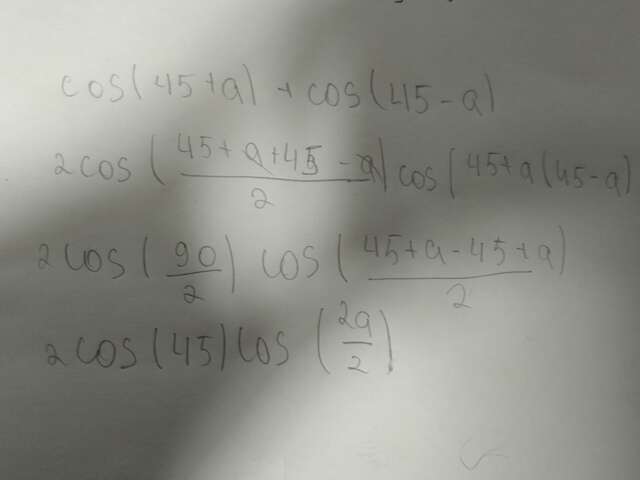 cos(45+a)+cos(45-a)
2cos(45+a+45-a/2)cos(45+a(45-a)
2cos(90/2)cos(45+a-45+a/2)
2cos(45)cos(2a/2)